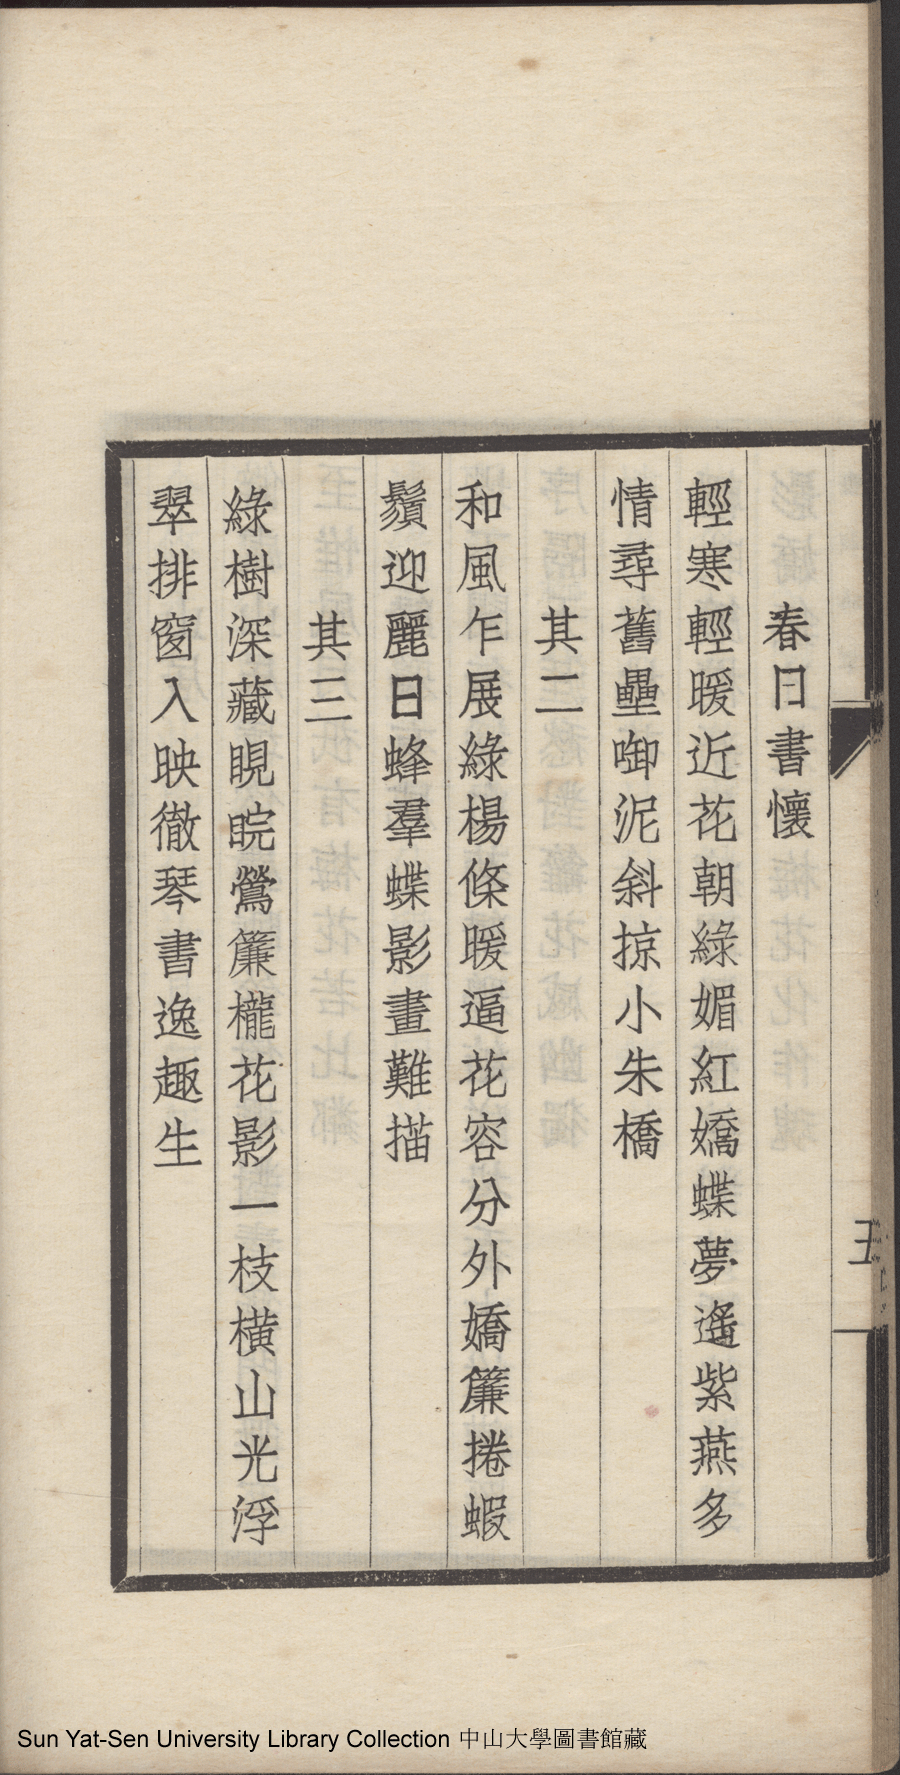 春日書懷
輕寒輕暖近花朝綠媚紅嬌蝶夢遙紫燕多
情尋舊壘啣泥斜掠小朱橋
其二
和風乍展綠楊條暖逼花容分外嬌簾捲蝦
鬚迎麗日蜂羣蝶影畫難描
其三
綠樹深藏睍睆鶯簾櫳花影一枝橫山光浮
翠排窗入映徹琴書逸趣生
Sun Yat-Sen University Library Collection 中山大學圖書館藏